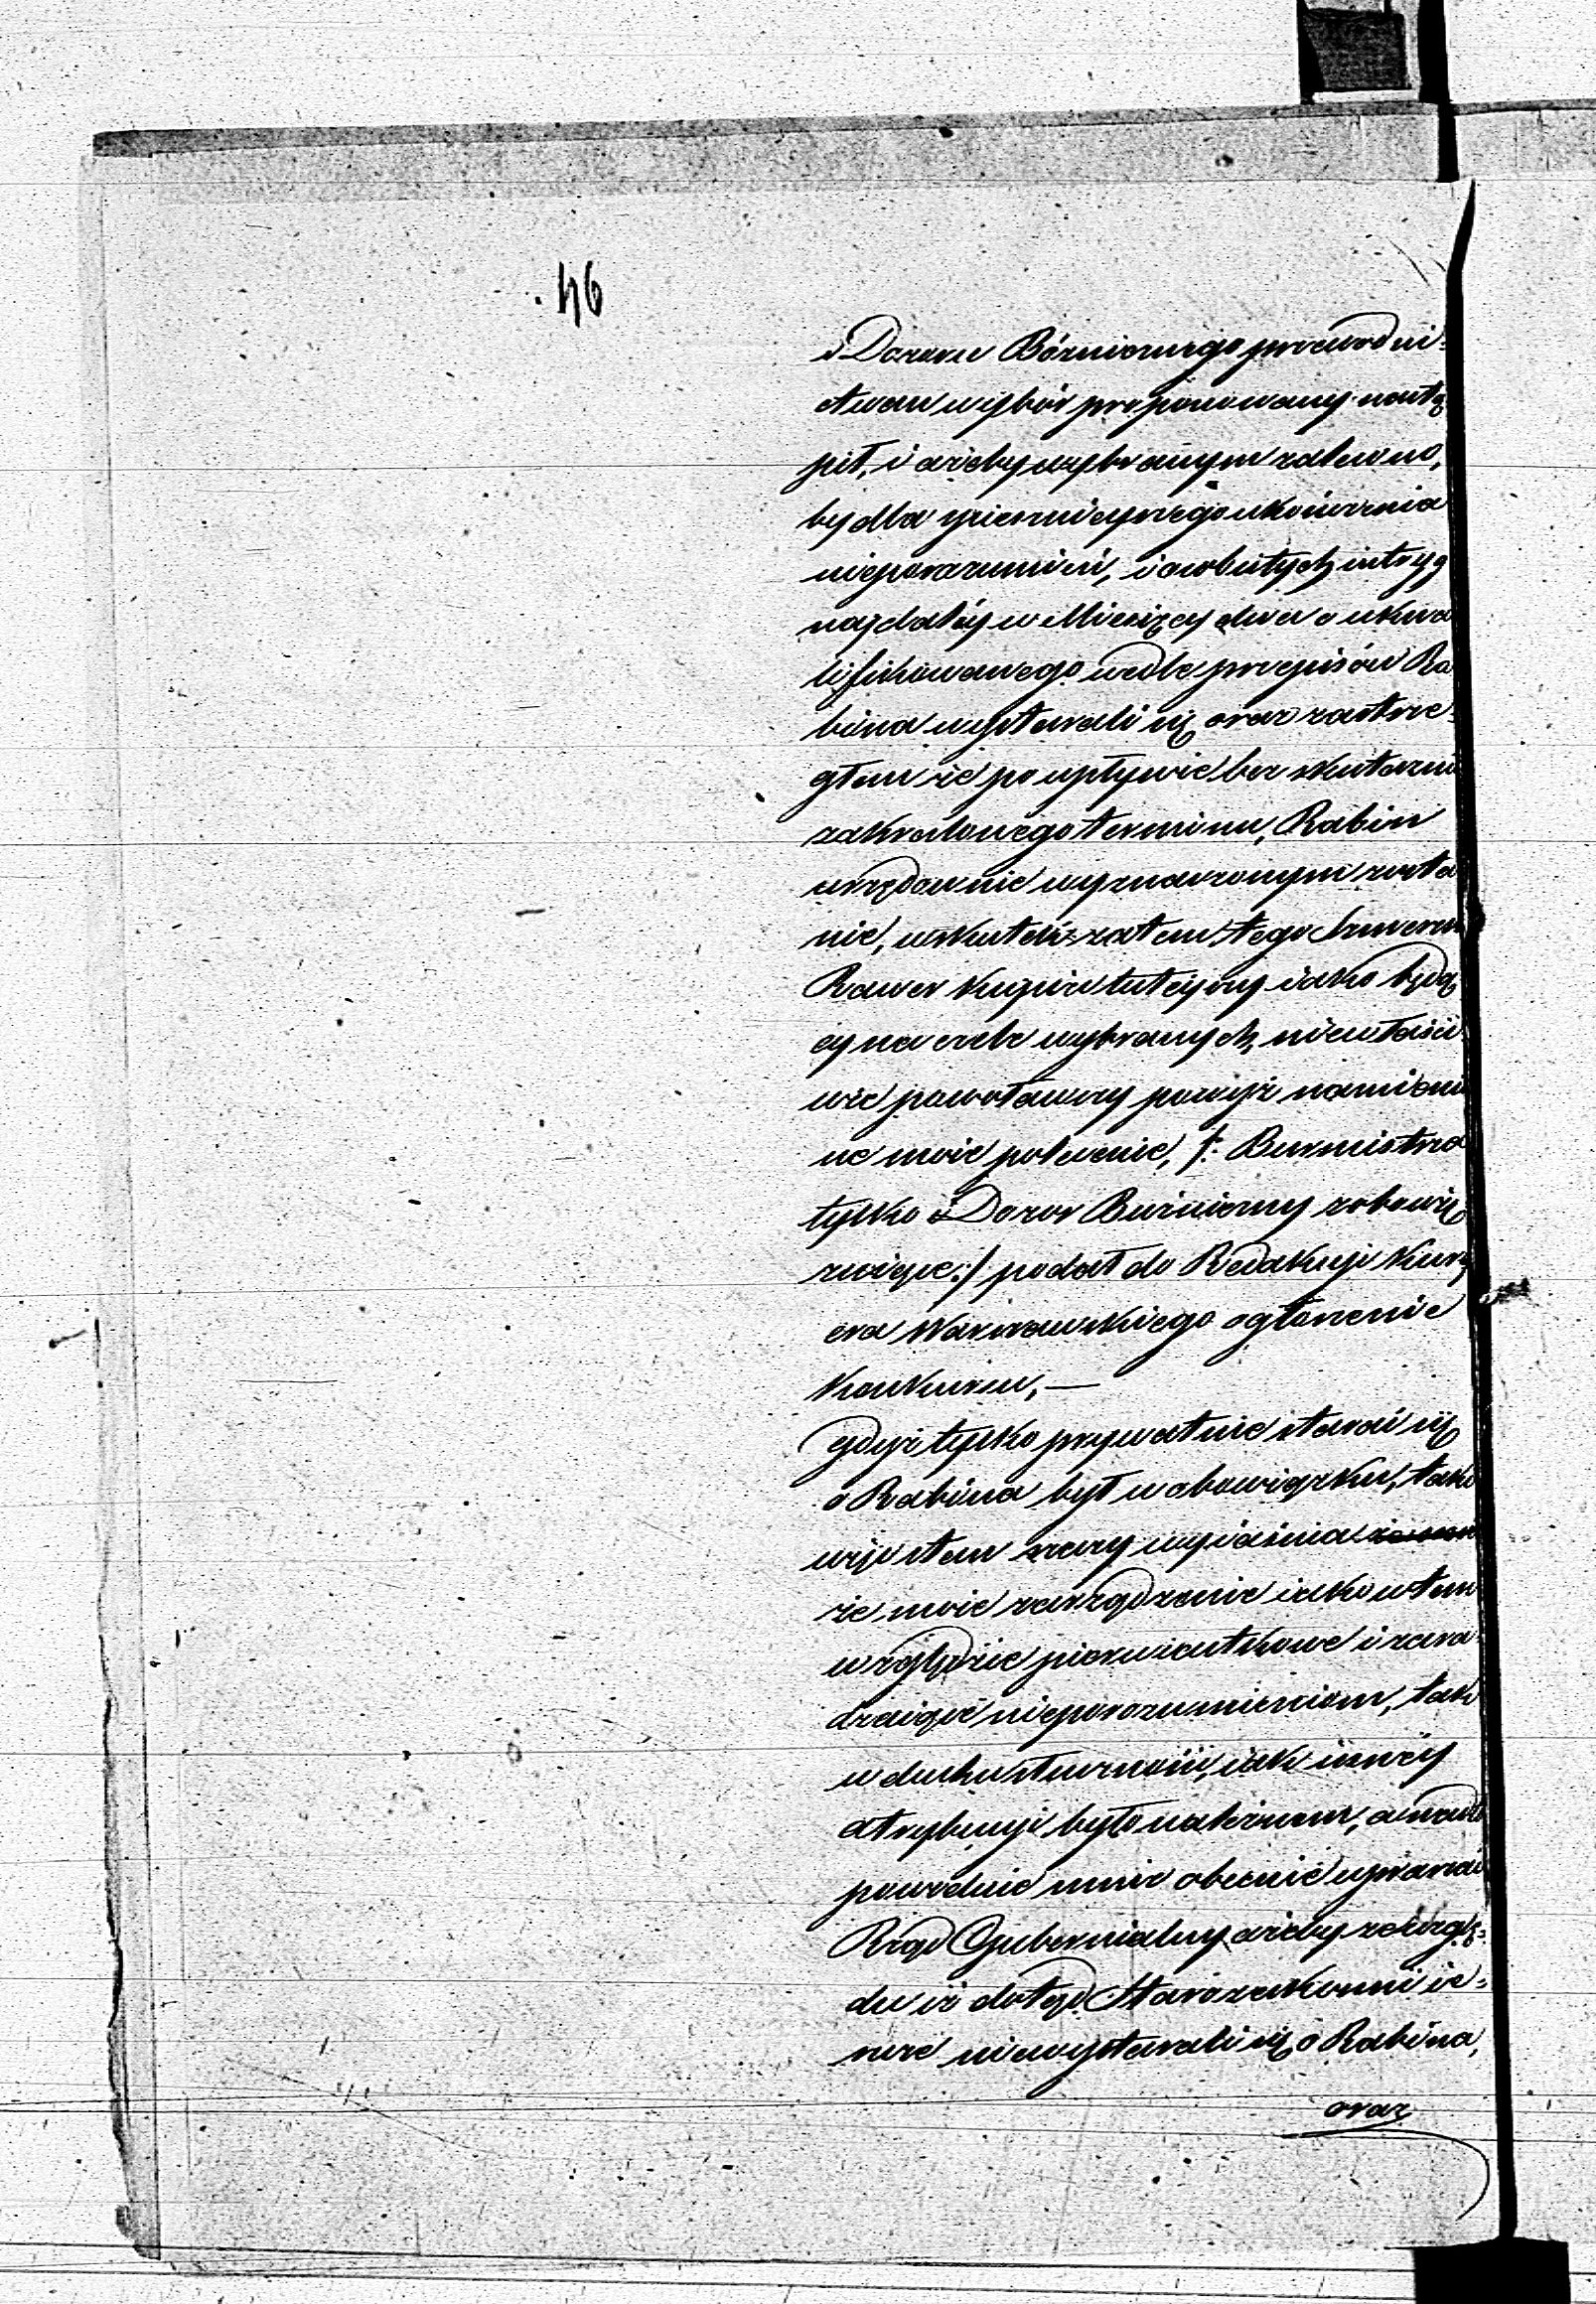 46
i Dozoru Bóżnicznego przewodni-
ctwem wybór proponowany nastą
pił, i ażeby wybranym zalecono,
by dla spieszniejszego ukończenia
nieporozumień, i osobistych intryg
najdalej w Miesięcy dwa o ukwa
lifikowanego wedle przepisów Ra
bina wystarali się oraz zastrze-
głem że po upływie bez skutecznie
zakreślonego terminu, Rabin
urzędownie wyznaczonym zosta
nie, w skutek zatem tego
Rawer Kupiec tutejszy jako będą
cy na czele wybranych, niewłaści
wie powoławszy powyż namienio
ne moie polecenie, /: Burmistrza
tylko i Dozor Bużniczny zobowią
zuiące :/ podał do Redakcyi Kury
era Warszawskiego ogłoszenie
Konkursu, —
gdyż tylko prywatnie starać się
o Rabina był w obowiązku, tako
wyż stan rzeczy wyiaśnia
że moie zarządzenie iako w tem
względzie pierwiastkowe i zara
dzaiące nieporozumieniom, tak
w duchu słuszności, iak i swéy
atrybucyi było należnem, a
powoduie mnie obecnie upraszać
Rząd Gubernialny ażeby ze wzglę-
du iż dotąd Starozakonni ie-
szcze niewystarali się o Rabina,
oraz